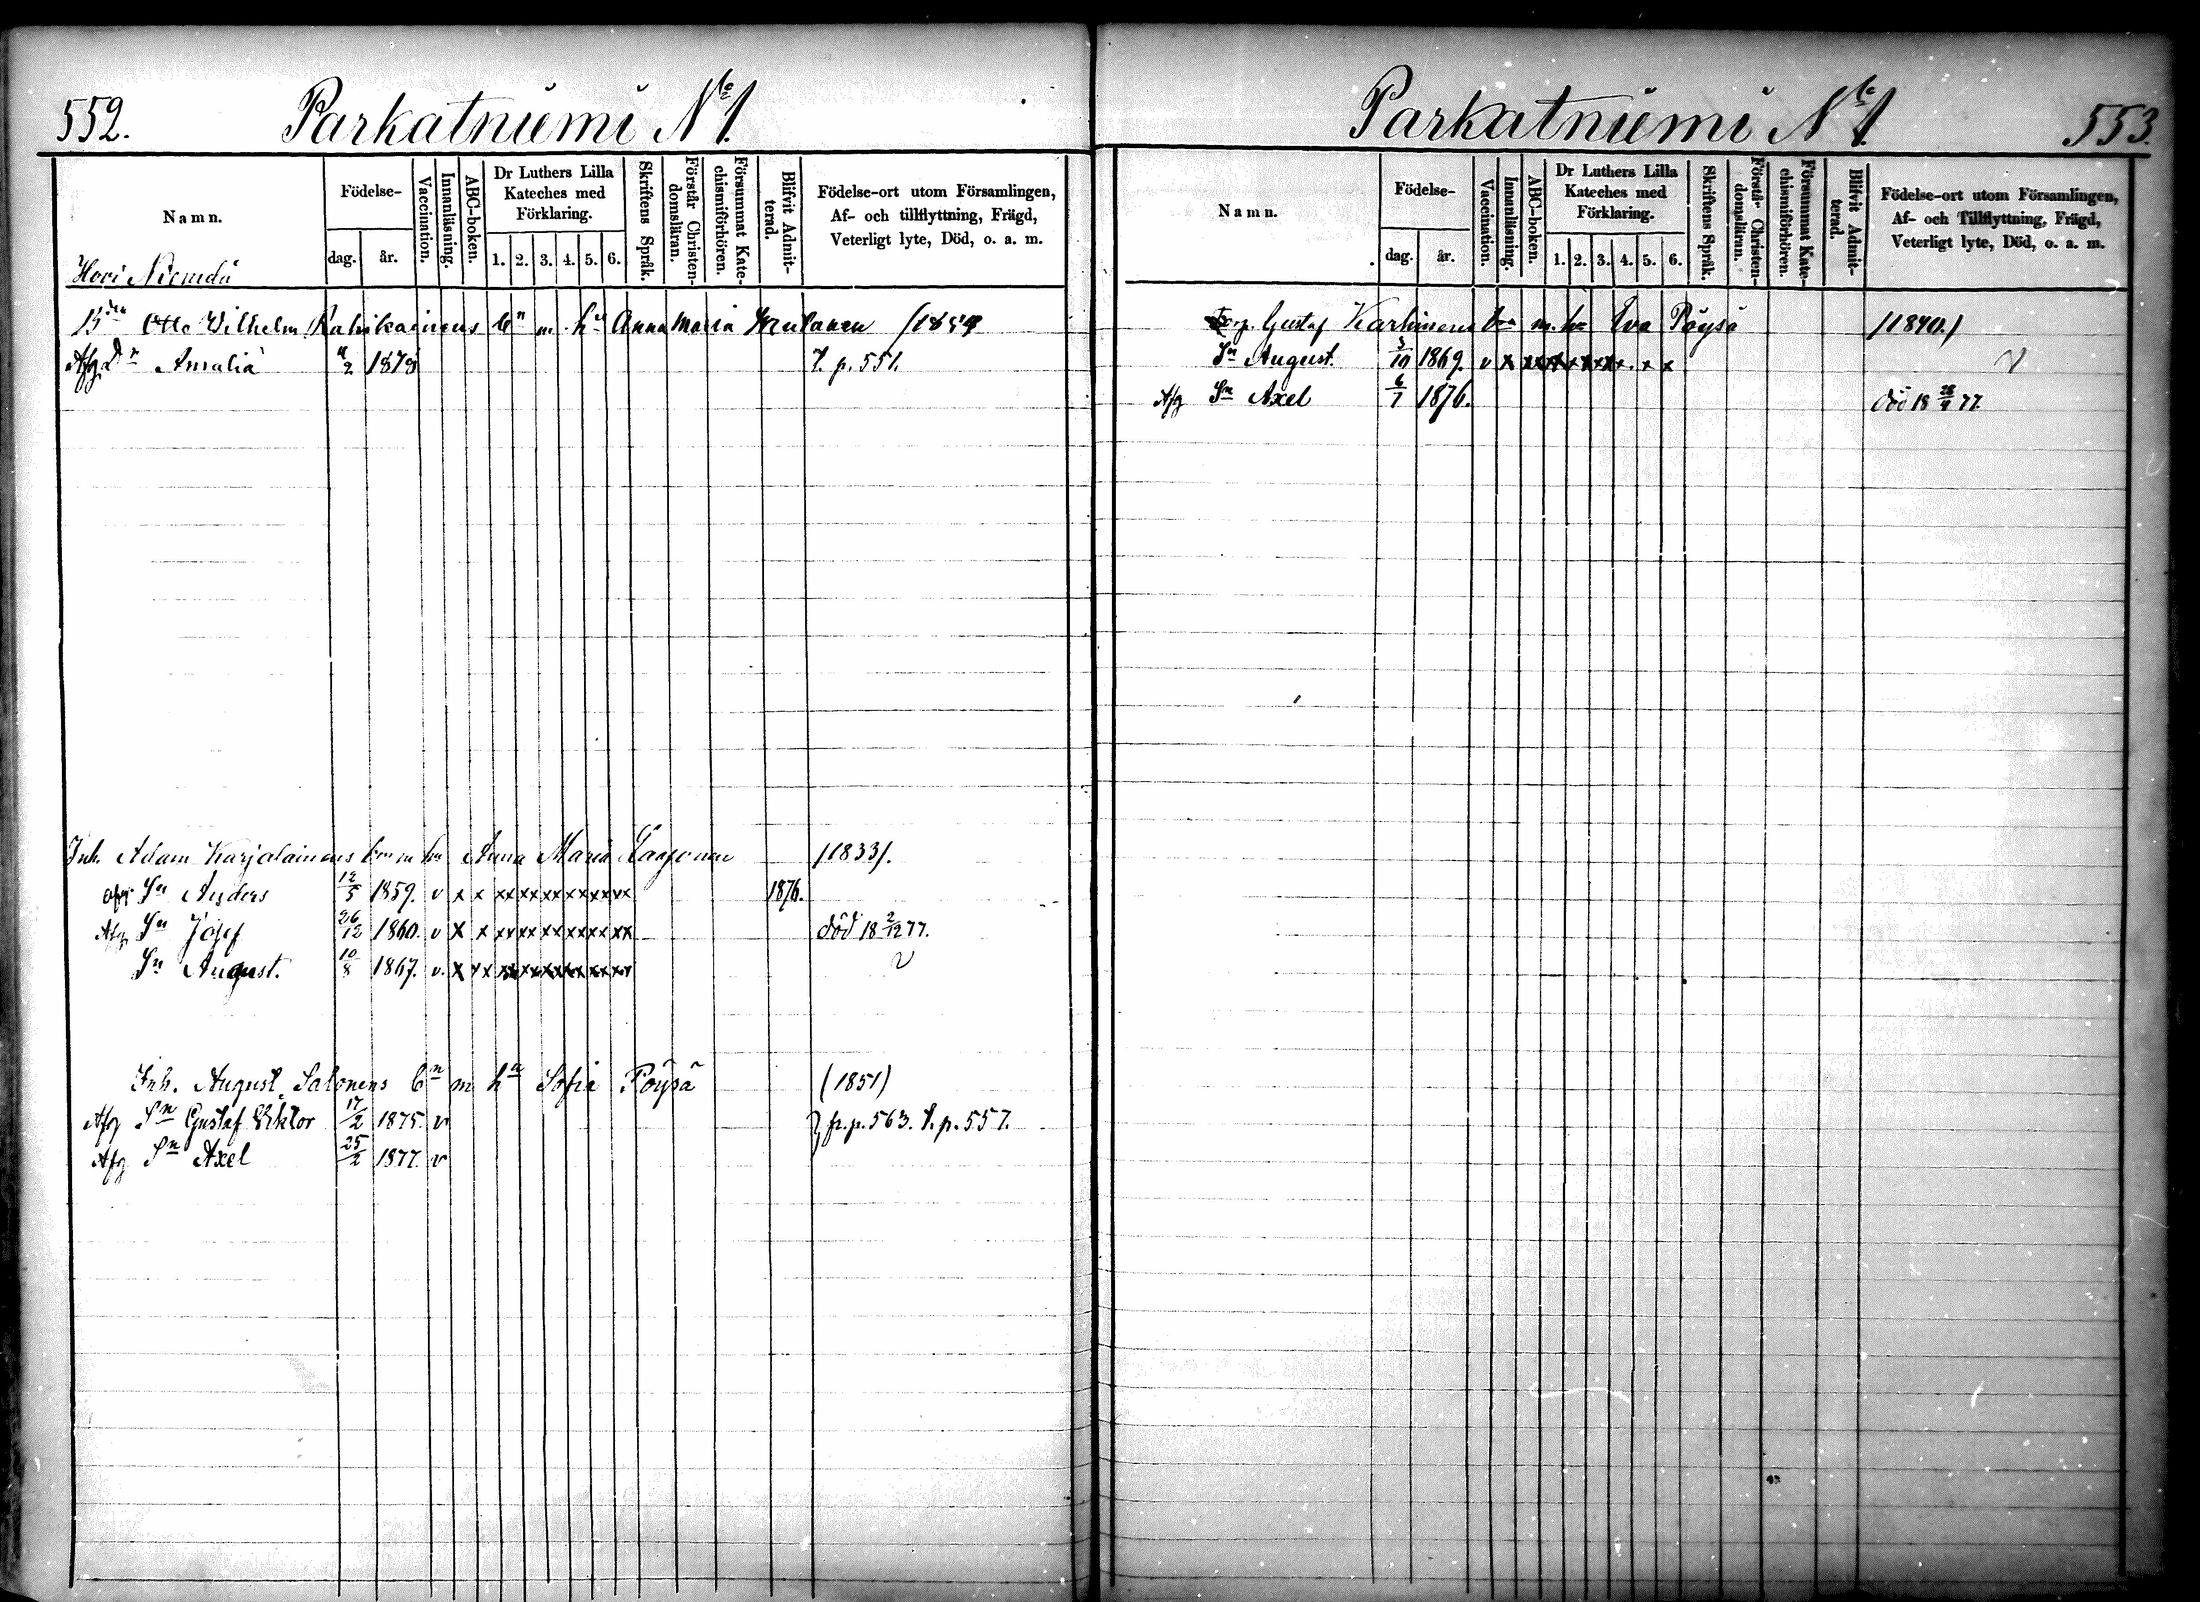 552. Parkatniemi No 1.
Namn.
Födelse-
dag. år.
Vaccination.
Innanläsning.
ABC-boken.
Dr Luthers Lilla Kateches med Förklaring.
1. 2. 3. 4. 5. 6.
Skriftens Språk.
Förstår Christendomsläran.
Försummat Katechismiförhören.
Blifvit Admitterad.
Födelse-ort utom Församlingen, Af- och tillflyttning, Frägd, Veterligt lyte, Död, o. a. m.
Otto Wilhelm bn m. hu Anna Maria
Afg. Dr Amalia 2 1878 t. p. 551.
Inh. Adam Karjalainens bn m hu Anna Maria /1833/.
afg. Sn Anders 12/5 1859. v x x xx xx xx xx xx xx 1876.
Afg Sn Josef 26/12 1860. v x x xx xx xx xx xx xx död 18 2/12 77.
Sn August. 10/8 1867. v. x x x xx xx xx xx xx xx v
Inh. August Salonens bn m hu Sofia Pöysä (1851)
Afg Sn Gustaf Viktor 17/2 1875. v } fr. p. 563. t. p. 557.
Afg Sn Axel 25/2 1877. v
Parkatniemi No 1. 553.
Namn.
Födelse-
dag. år.
Vaccination.
Innanläsning.
ABC-boken.
Dr Luthers Lilla Kateches med Förklaring.
1. 2. 3. 4. 5. 6.
Skriftens Språk.
Förstår Christendomsläran.
Försummat Katechismiförhören.
Blifvit Admitterad.
Födelse-ort utom Församlingen, Af- och Tillflyttning, Frägd, Veterligt lyte, Död, o. a. m.
Torp. Gustaf Karhinens bn m. hu Eva Pöysä /1840./
Sn August. 3/10 1869. v x xx xx xx xx x x v
Afg Sn Axel 6/7 1876. död 18 28/4 77.